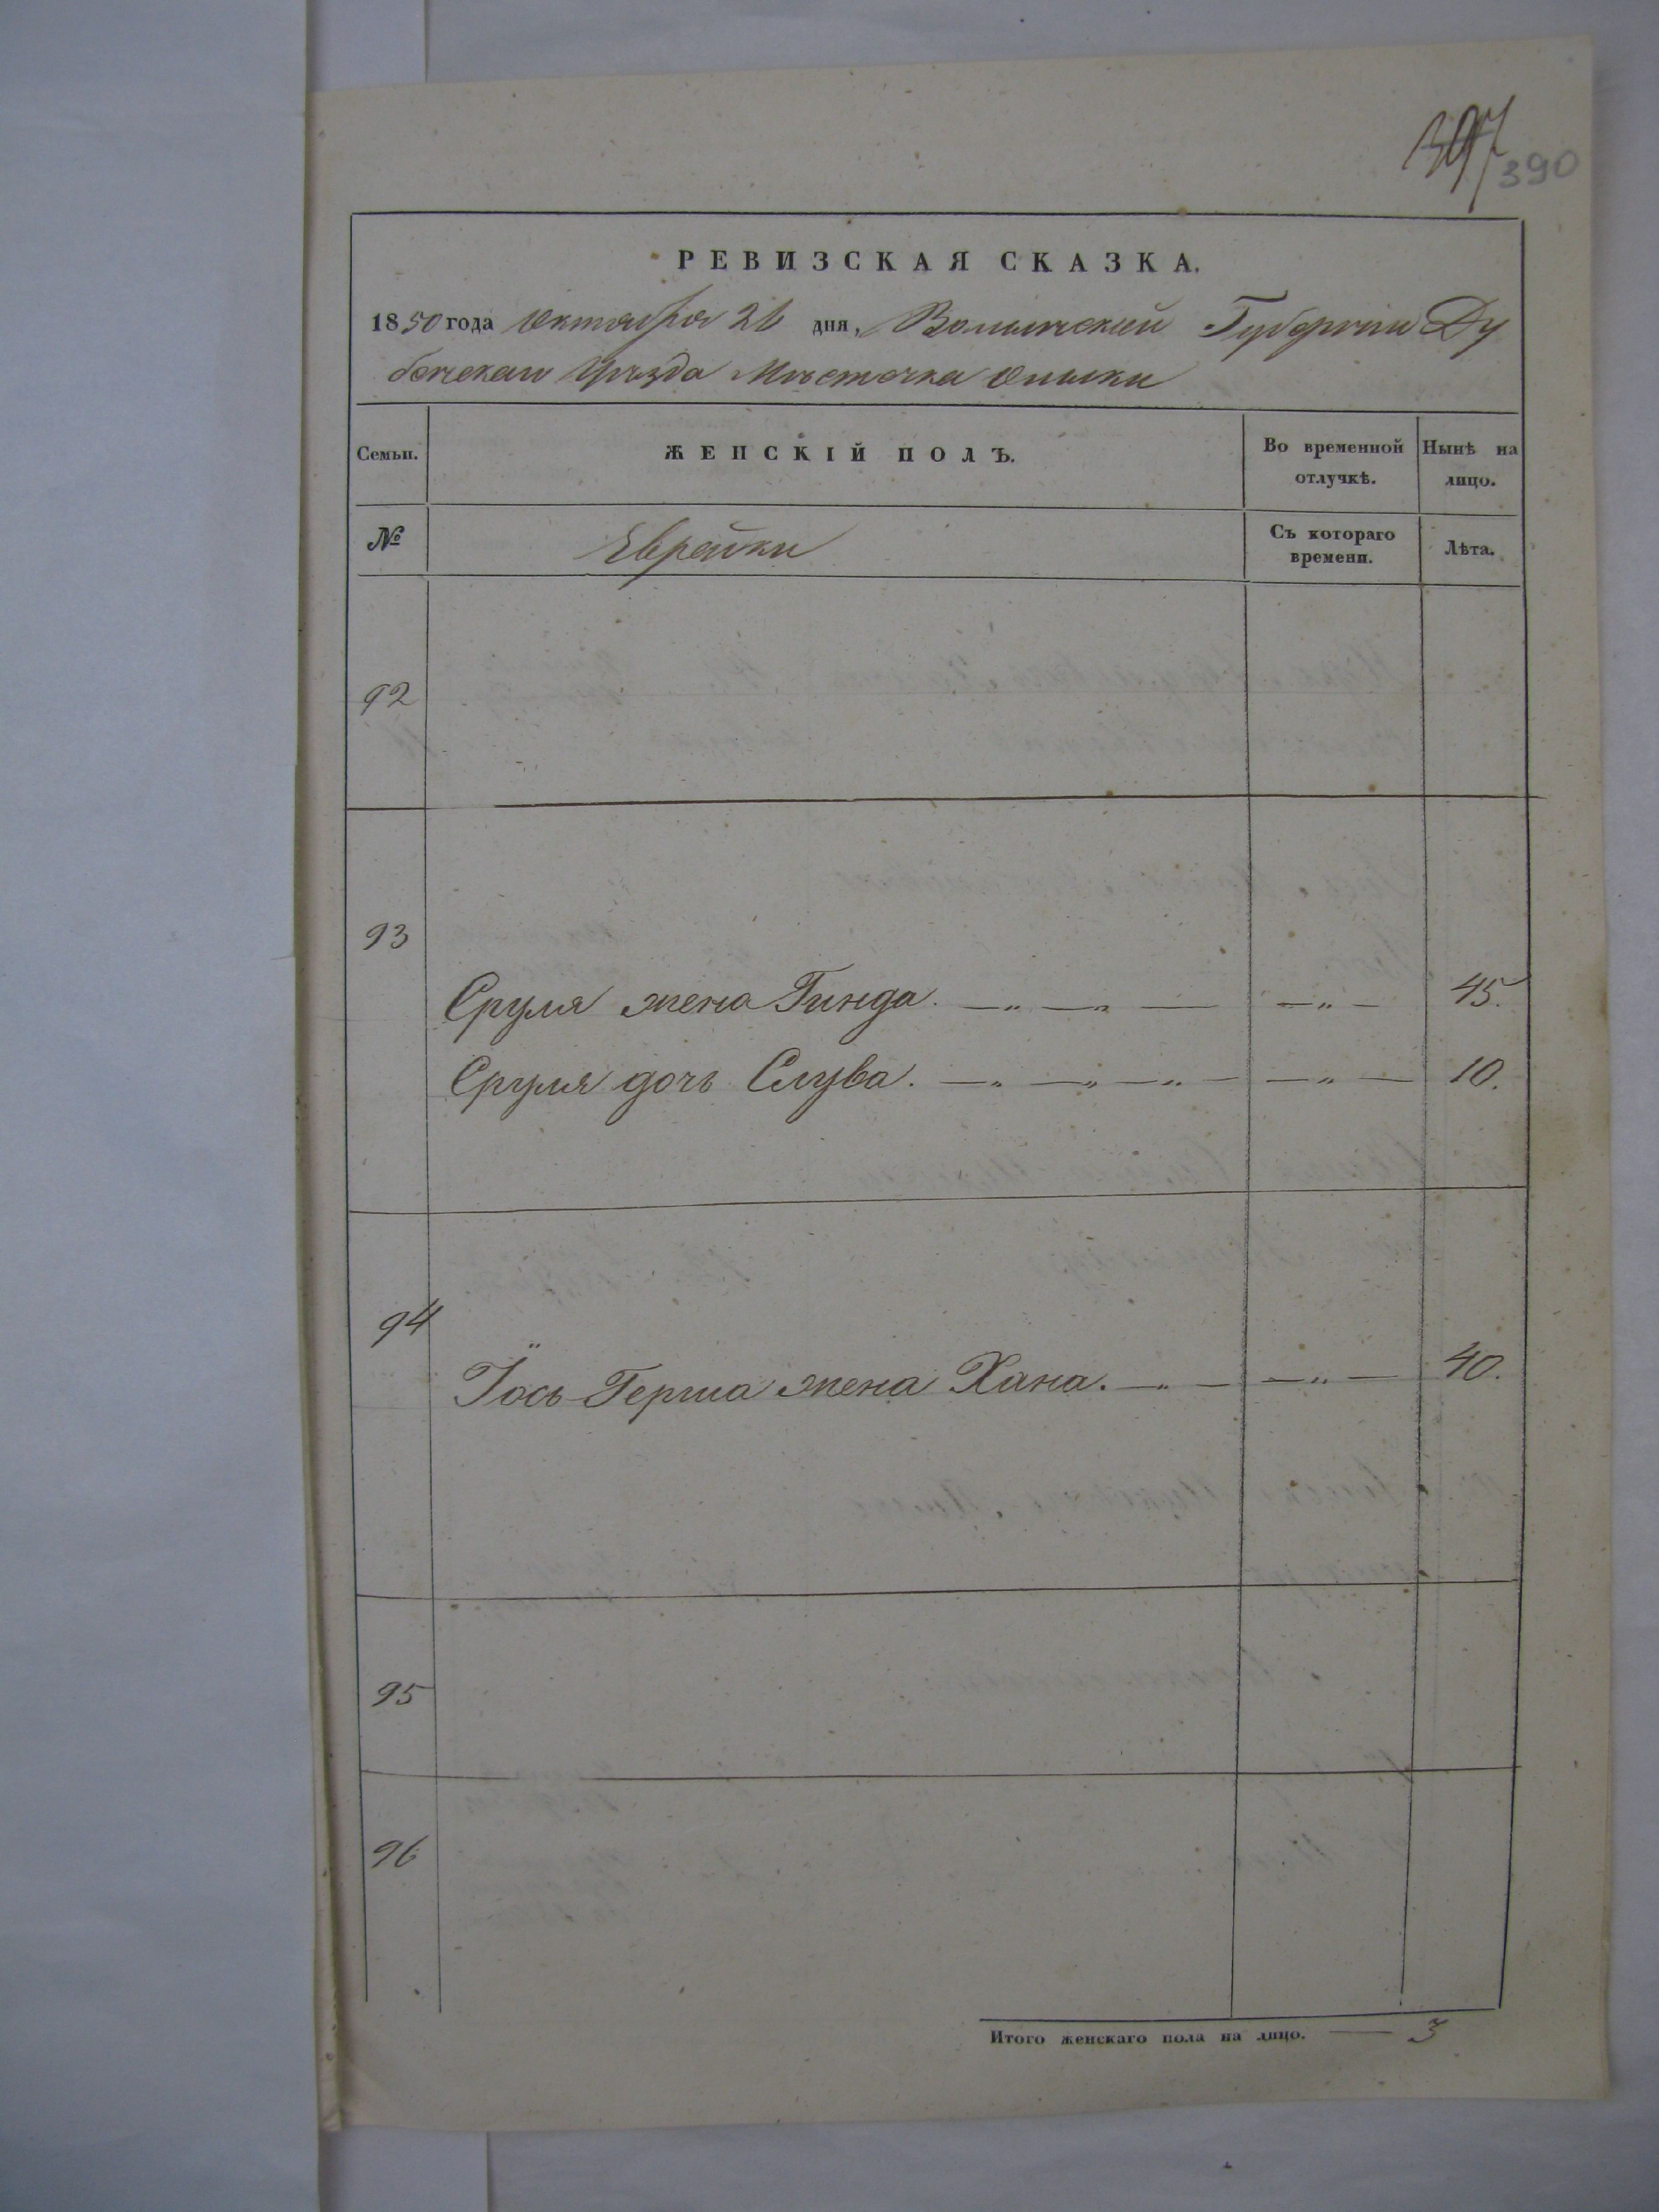 397
390
РЕВИЗСКАЯ СКАЗКА.
1850 года Октября 26 дня, Волынской Губернии Ду
бенскаго Уѣзда Мѣстечка Олыки
Семьи. ЖЕНСКІЙ ПОЛЪ. Во временной отлучкѣ. Нынѣ на лицо.
№ Еврейки Съ котораго времени. Лѣта.
92
93
Сруля жена Гинда. —„—„— —„— 45.
Сруля дочь Слува. —„—„—„— —„— 10.
94
Іось-Герша жена Хана. —„— —„— 40.
95
96
Итого женскаго пола на лицо. — 3